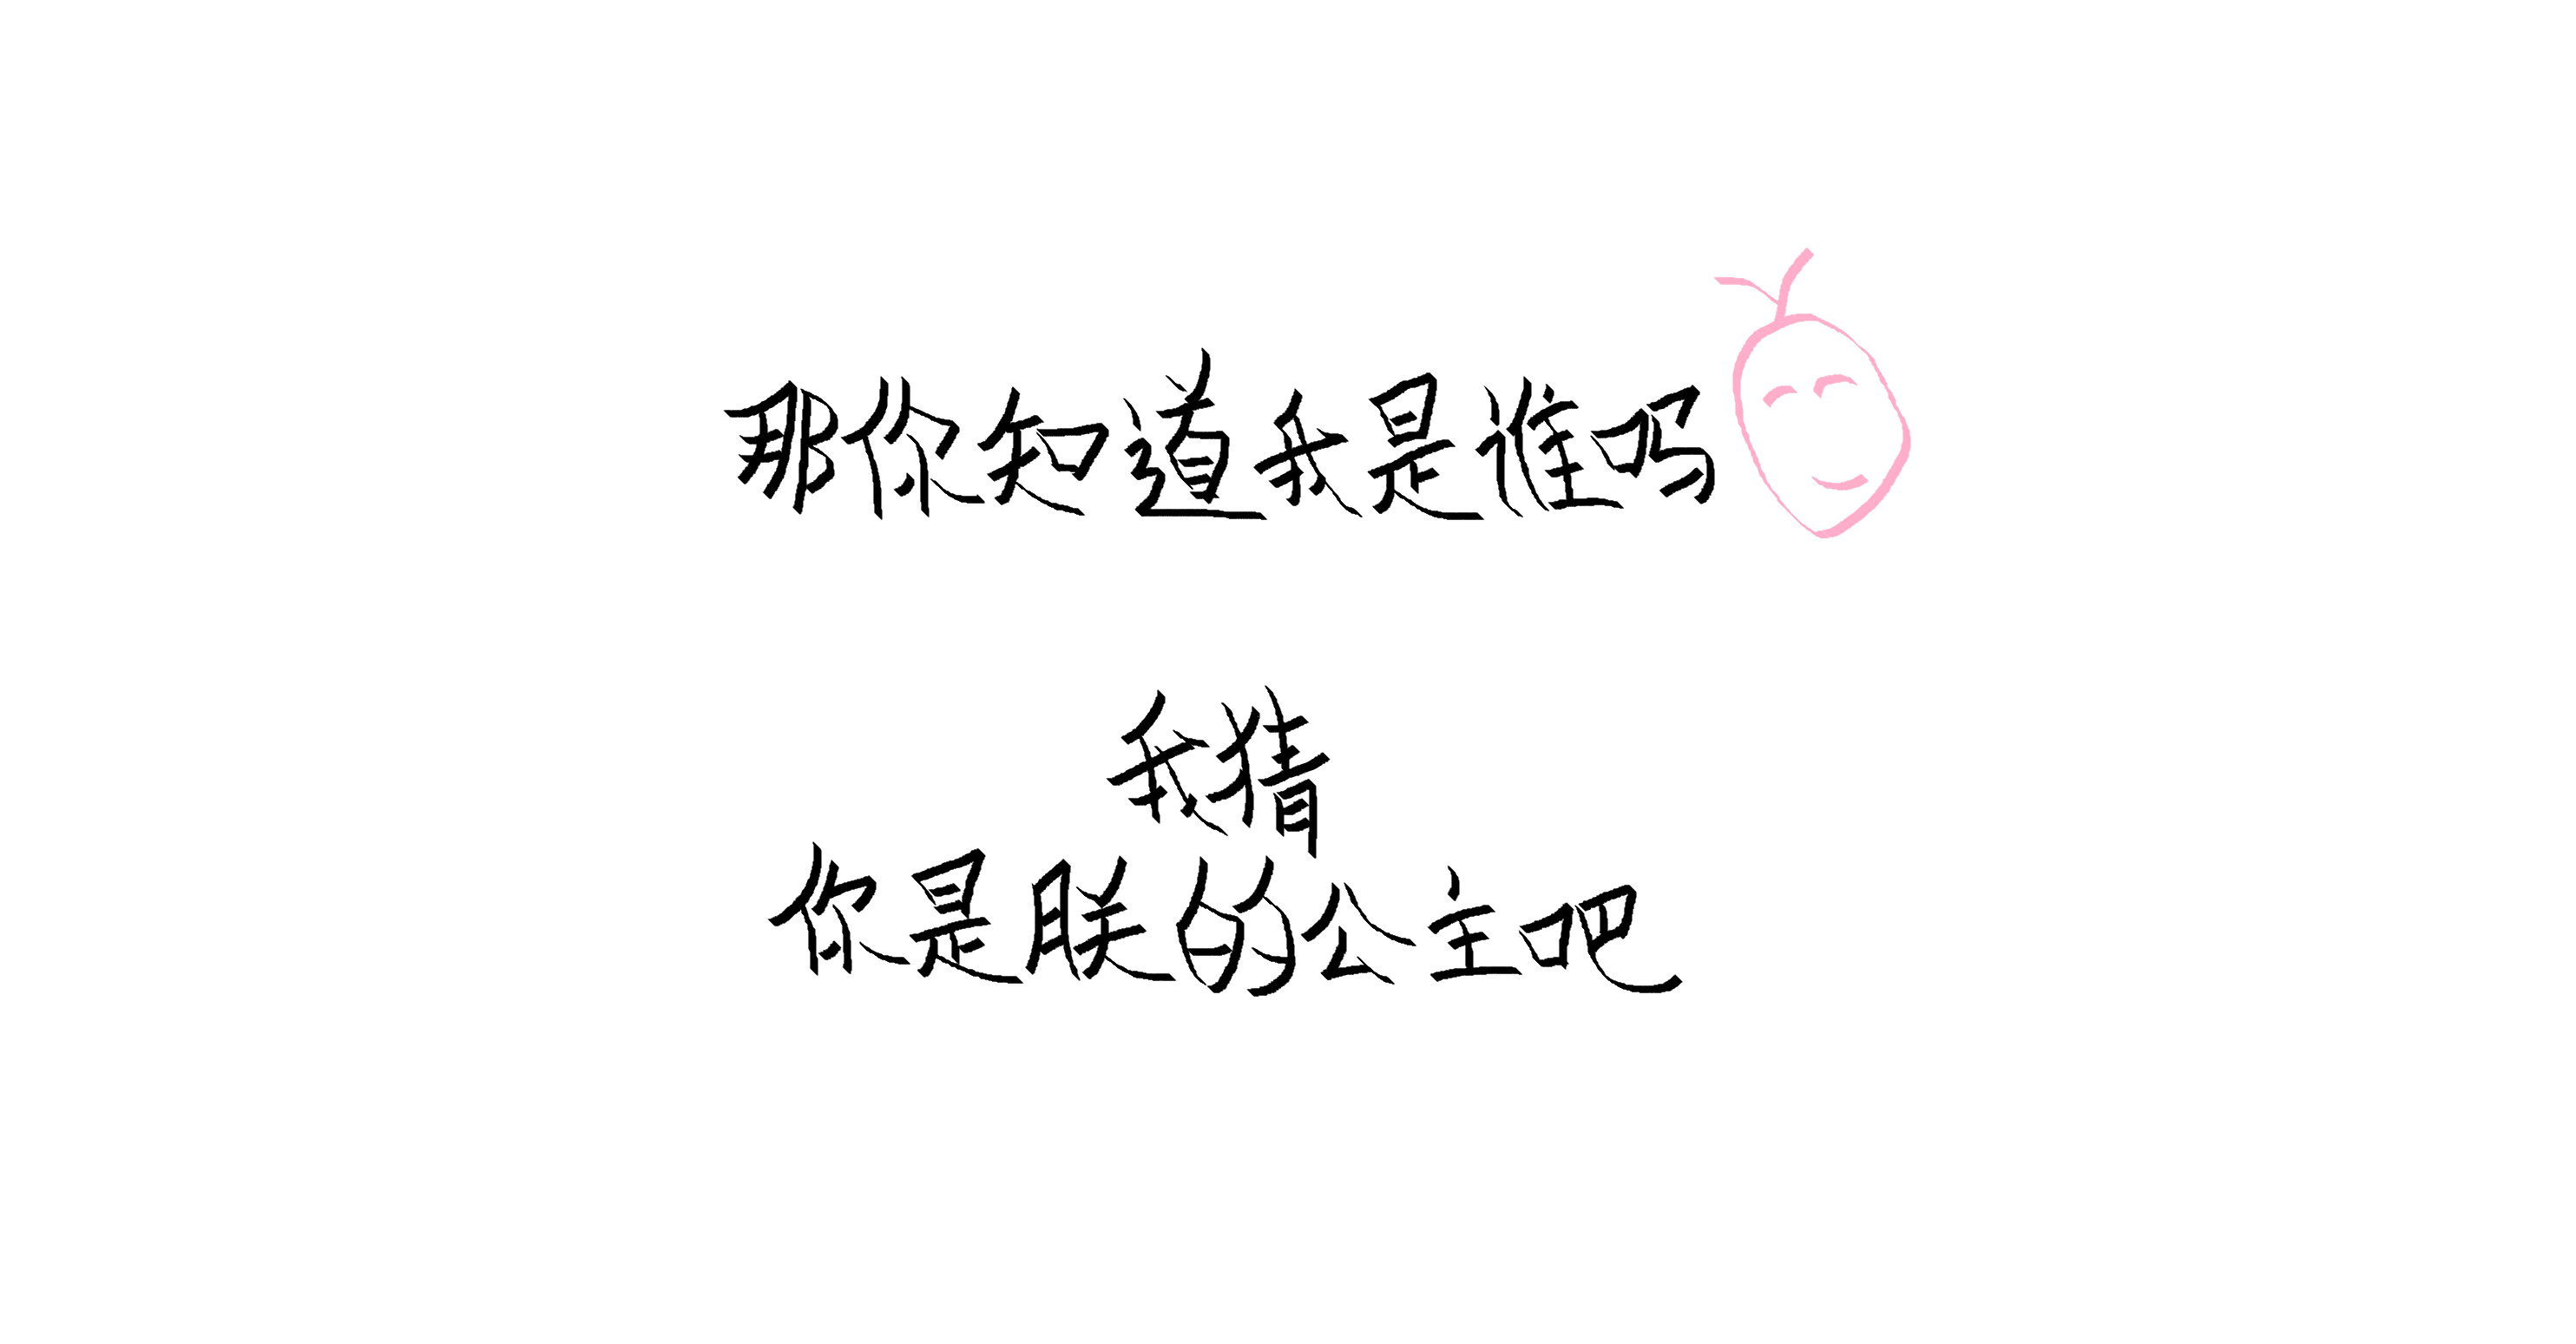 那你知道我是谁吗
我猜
你是朕的公主吧